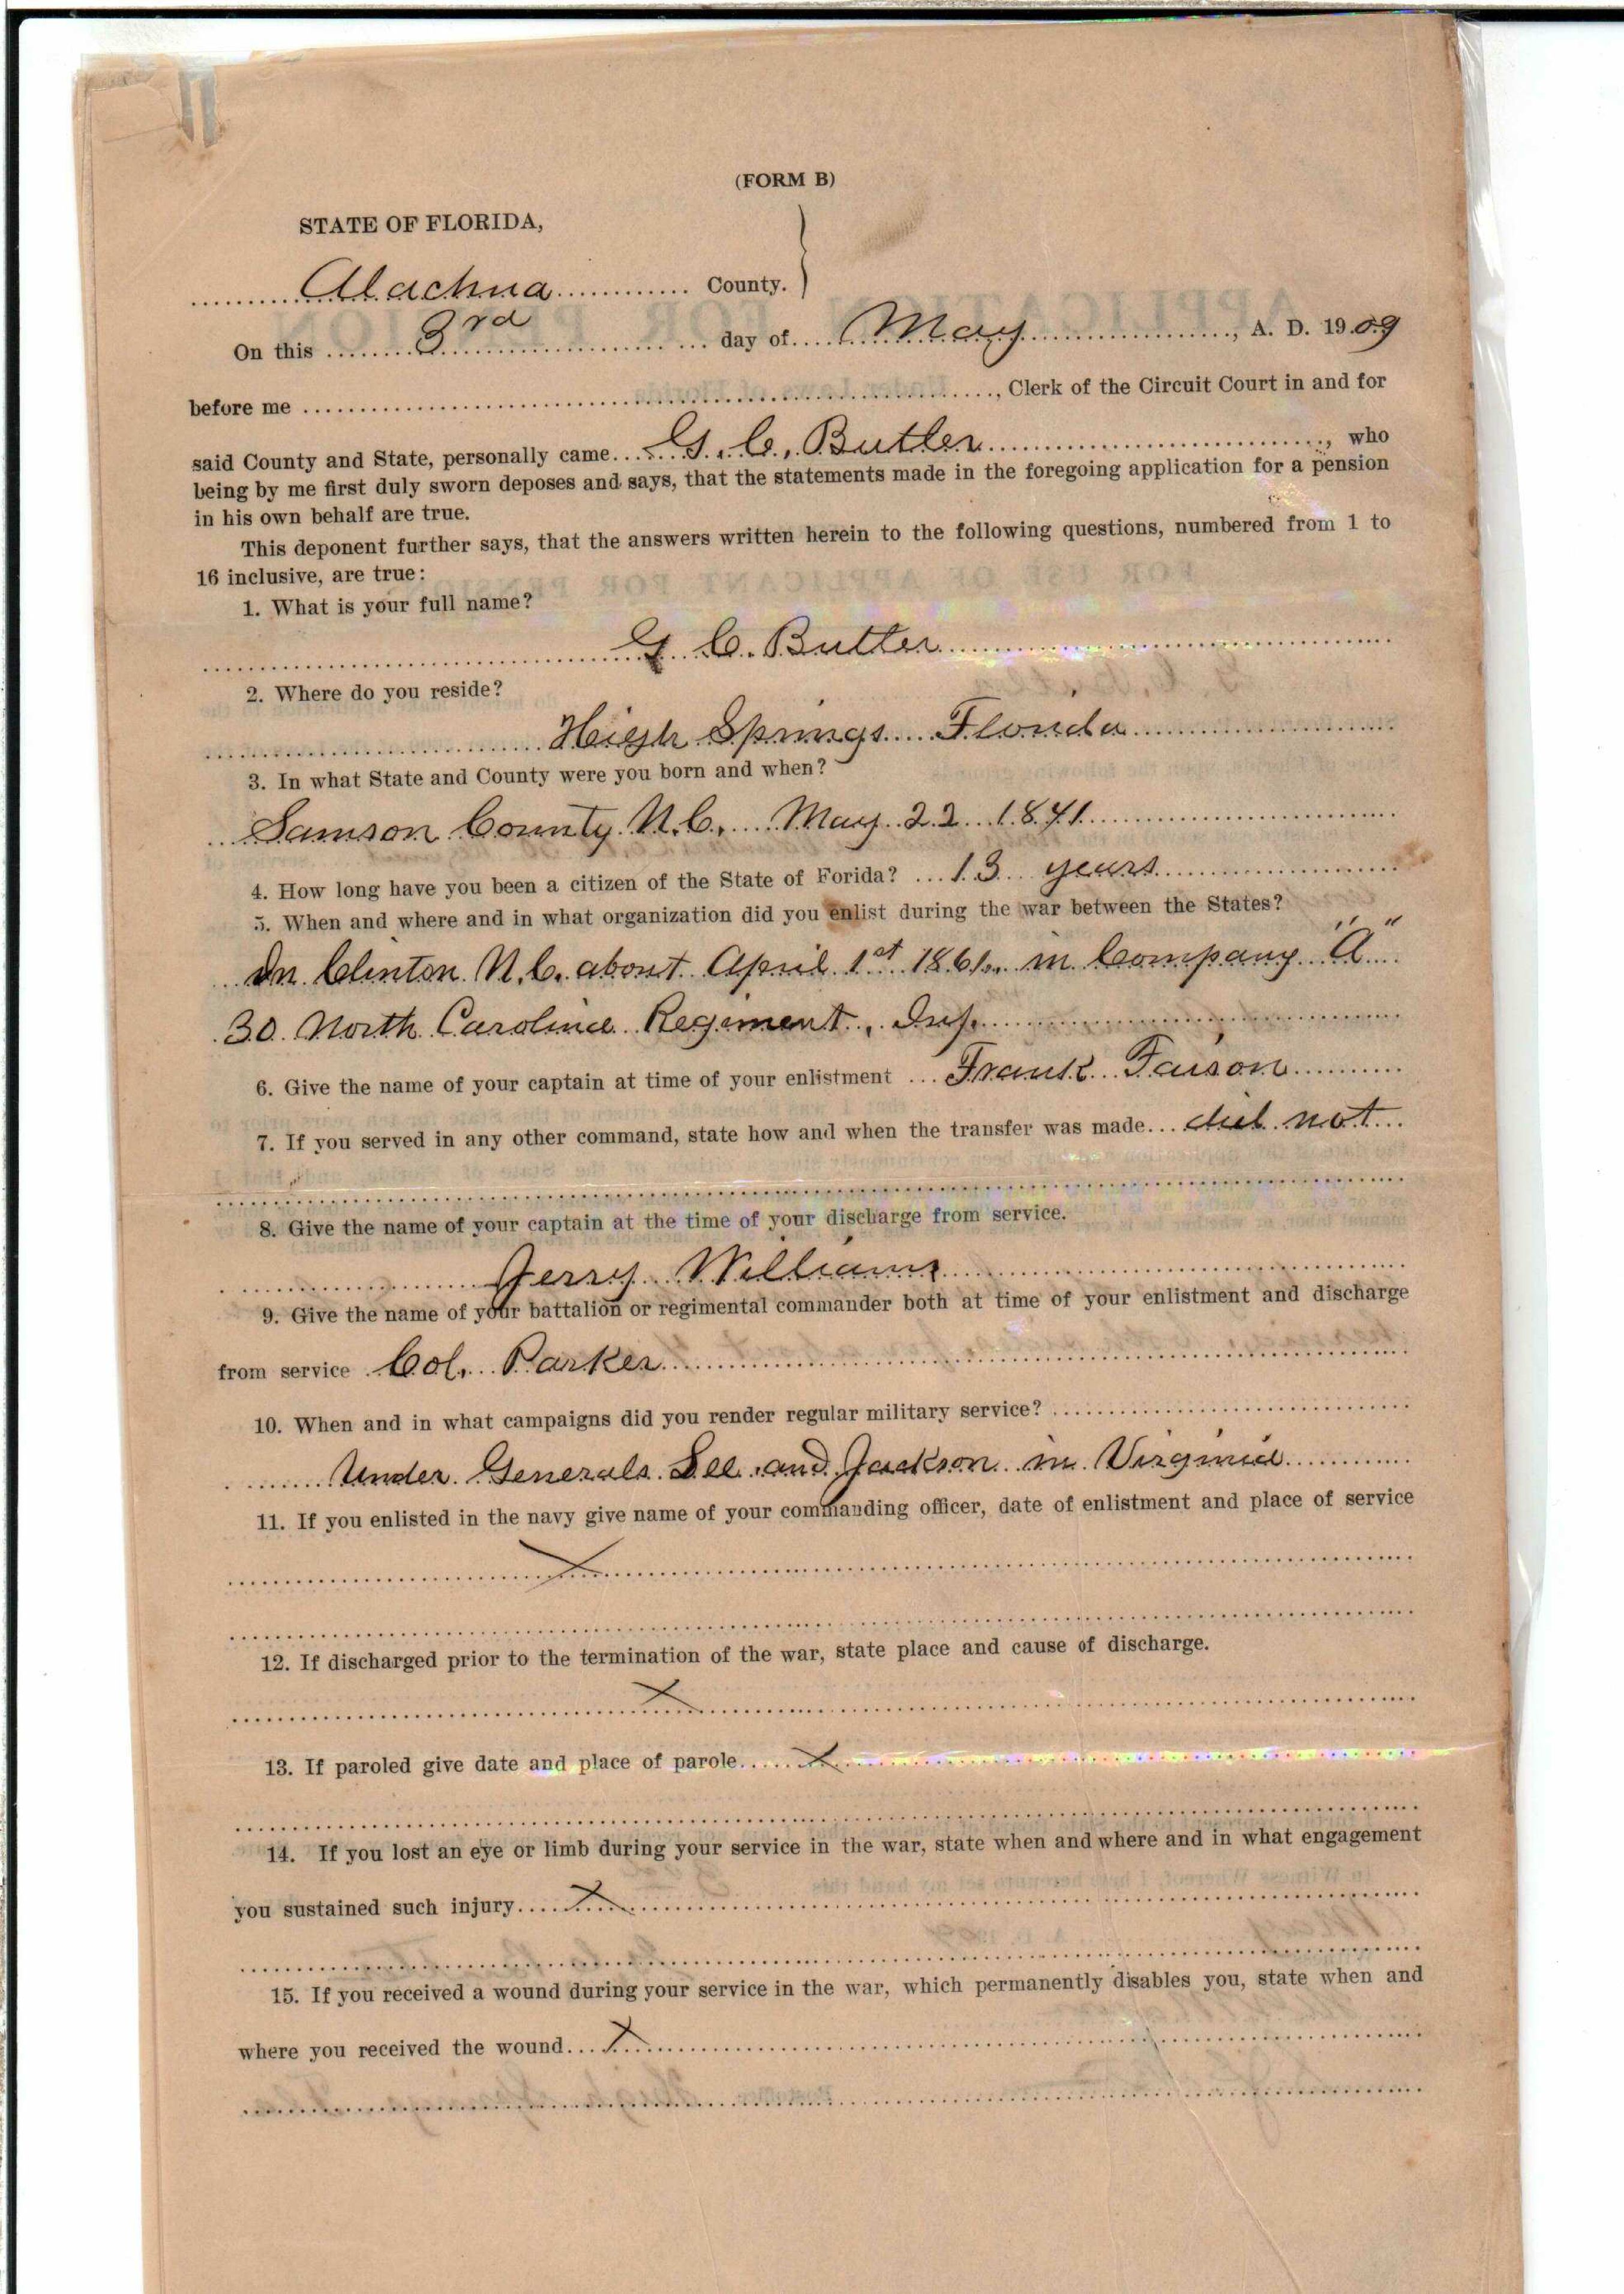 (FORM B)
STATE OF FLORIDA,
Alachua County.
On this 3rd day of May, A. D. 1909
before me , Clerk of the Circuit Court in and for
said County and State, personally came G. C. Butler, who
being by me first duly sworn deposes and says, that the statements made in the foregoing application for a pension
in his own behalf are true.
This deponent further says, that the answers written herein to the following questions, numbered from 1 to
16 inclusive, are true:
1. What is your full name?
G C. Butler
2. Where do you reside?
High Springs Florida
3. In what State and County were you born and when?
Samson County N.C. May 22 1841
4. How long have you been a citizen of the State of Forida? 13 years
5. When and where and in what organization did you enlist during the war between the States?
In Clinton N.C. about April 1st 1861. in Company "A"
30 North Carolina Regiment, Inf.
6. Give the name of your captain at time of your enlistment Frank Faison
7. If you served in any other command, state how and when the transfer was made did not
8. Give the name of your captain at the time of your discharge from service.
Jerry Williams
9. Give the name of your battalion or regimental commander both at time of your enlistment and discharge
from service Col. Parker
10. When and in what campaigns did you render regular military service?
Under Generals Lee and Jackson in Virginia
11. If you enlisted in the navy give name of your commanding officer, date of enlistment and place of service
X
12. If discharged prior to the termination of the war, state place and cause of discharge.
X
13. If paroled give date and place of parole X
14. If you lost an eye or limb during your service in the war, state when and where and in what engagement
you sustained such injury X
15. If you received a wound during your service in the war, which permanently disables you, state when and
where you received the wound X